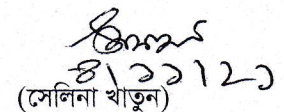 ৪/১১/২১
(সেলিনা খাতুন)